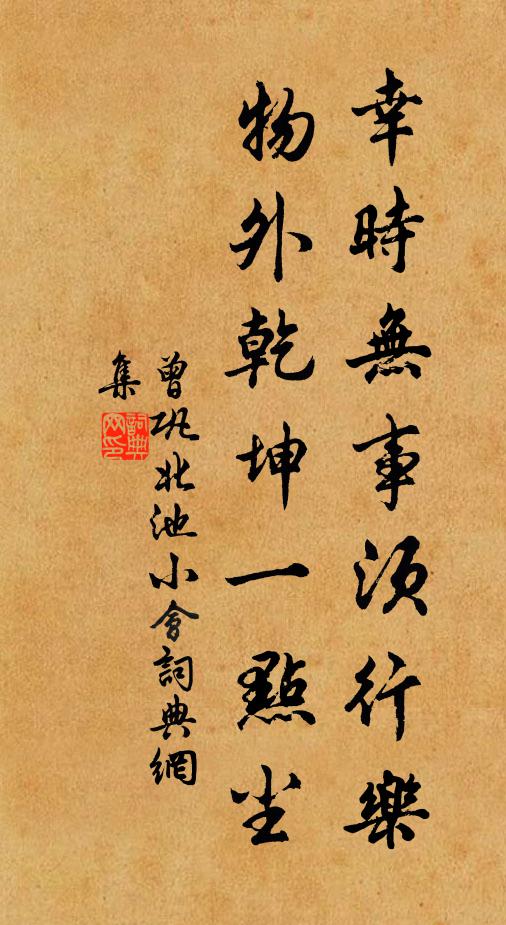 幸時無事須行樂
物外乾坤一點尘
曾巩北池小會詞典網
集
詞典網印